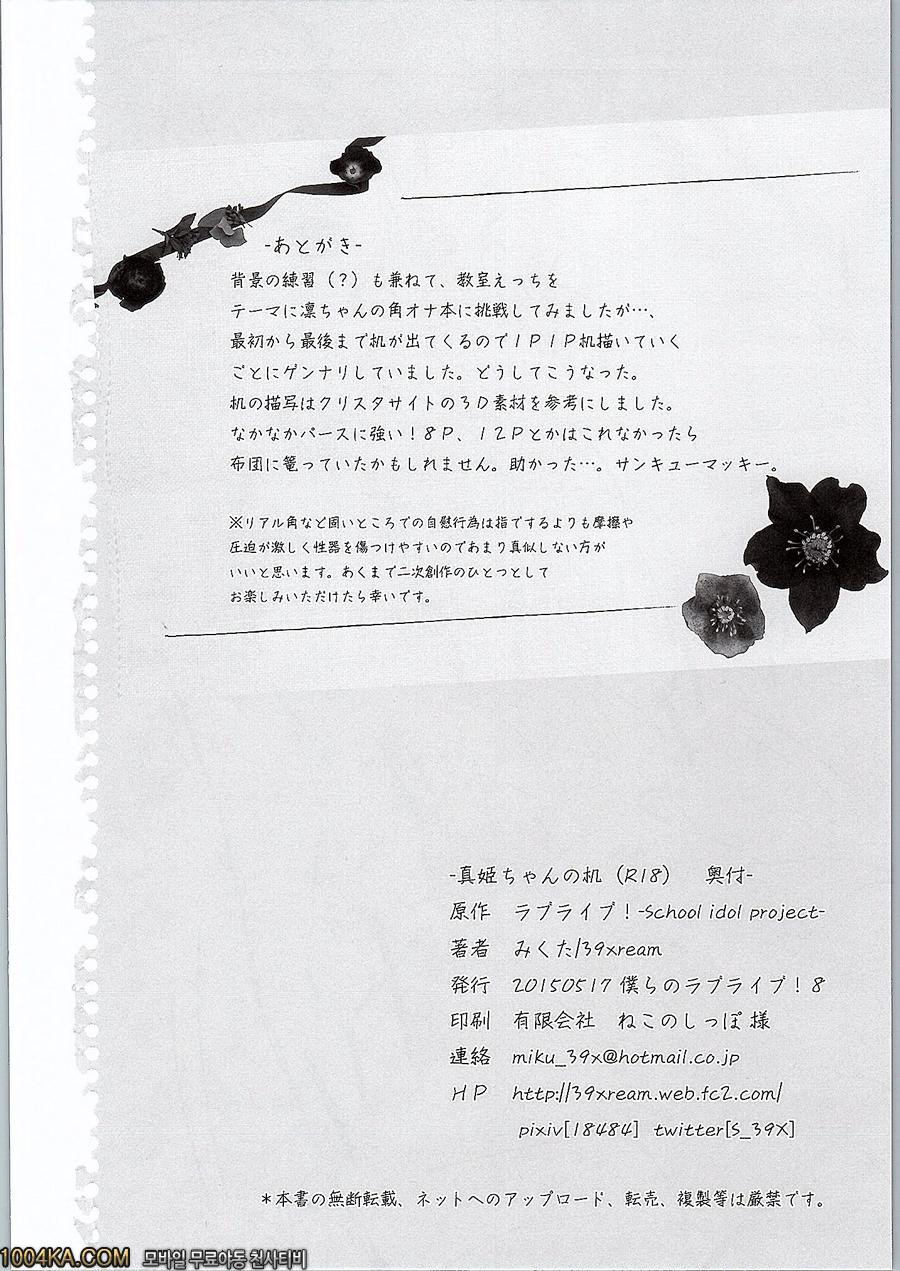 -あとがき-
背景の練習（？）も兼ねて、教室えっちを
テーマに凛ちゃんの角オナ本に挑戦してみましたが…、
最初から最後まで机が出てくるので１Ｐ１Ｐ机描いていく
ごとにゲンナリしていました。どうしてこうなった。
机の描写はクリスタサイトの３Ｄ素材を参考にしました。
なかなかパースに強い！８Ｐ、１２Ｐとかはこれなかったら
布団に篭っていたかもしれません。助かった…。サンキューマッキー。
※リアル角など固いところでの自慰行為は指でするよりも摩擦や
圧迫が激しく性器を傷つけやすいのであまり真似しない方が
いいと思います。あくまで二次創作のひとつとして
お楽しみいただけたら幸いです。
-真姫ちゃんの机（R18）　奥付-
原作　ラブライブ！-School idol project-
著者　みくた/39xream
発行　20150517 僕らのラブライブ！8
印刷　有限会社　ねこのしっぽ 様
連絡　miku_39x@hotmail.co.jp
ＨＰ　http://39xream.web.fc2.com/
pixiv[18484]　twitter[S_39X]
＊本書の無断転載、ネットへのアップロード、転売、複製等は厳禁です。
1004KA.COM 모바일 무료야동 천사티비